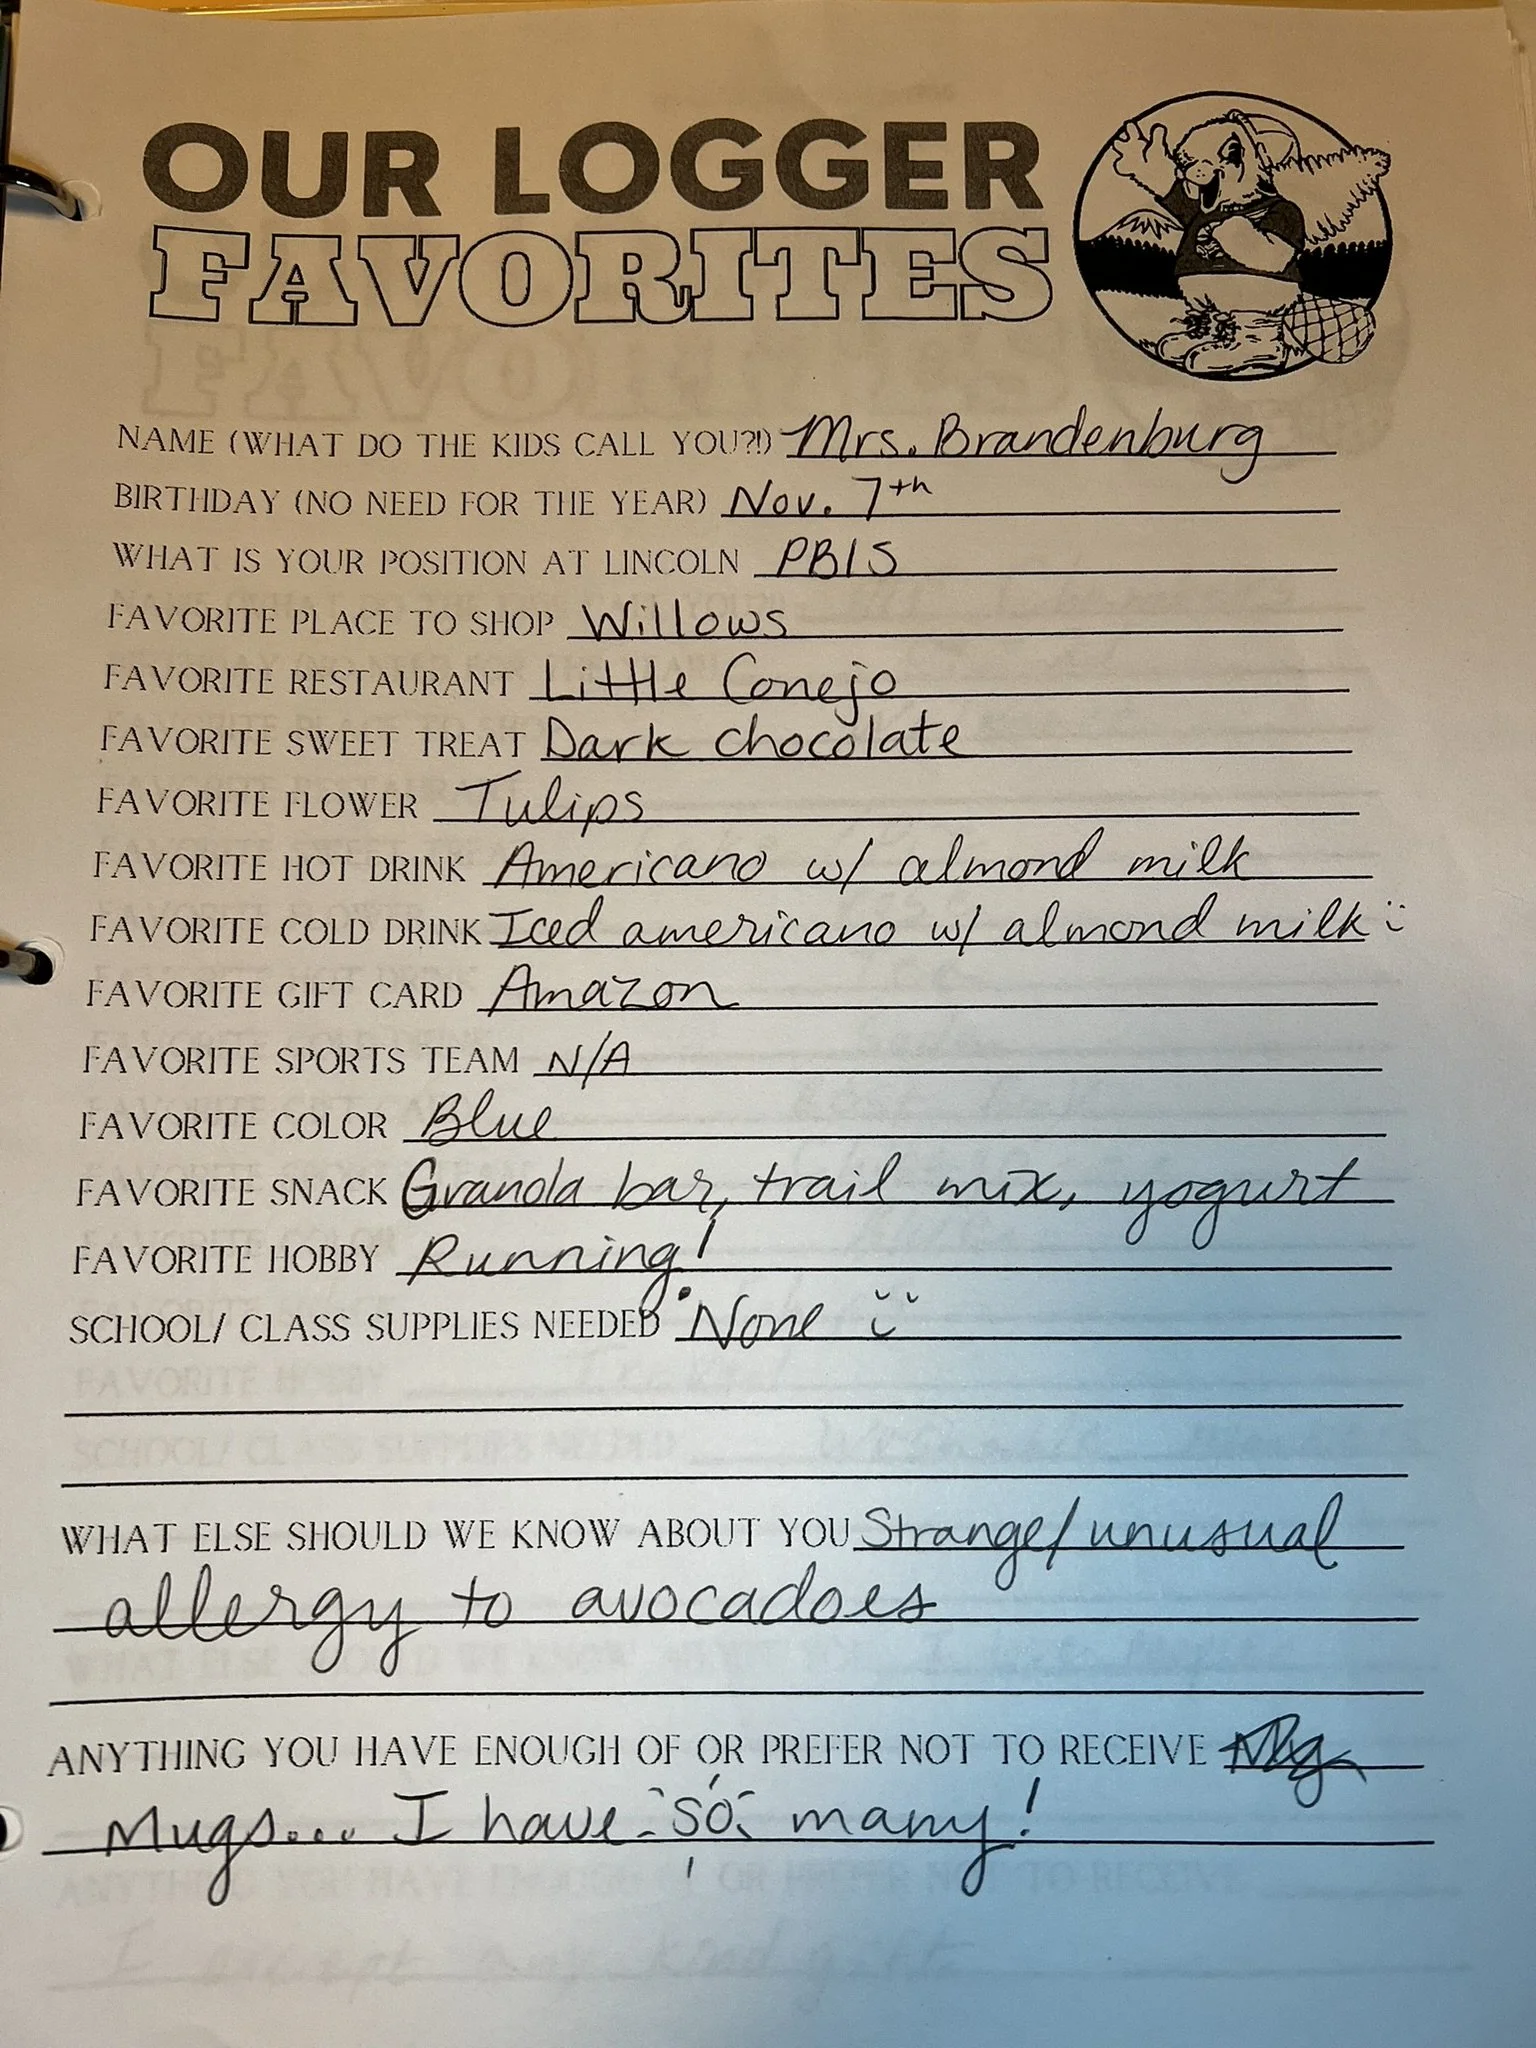 OUR LOGGER
FAVORITES
NAME (WHAT DO THE KIDS CALL YOU?!) Mrs. Brandenburg
BIRTHDAY (NO NEED FOR THE YEAR) Nov. 7th
WHAT IS YOUR POSITION AT LINCOLN PBIS
FAVORITE PLACE TO SHOP Willows
FAVORITE RESTAURANT Little Conejo
FAVORITE SWEET TREAT Dark chocolate
FAVORITE FLOWER Tulips
FAVORITE HOT DRINK Americano w/ almond milk
FAVORITE COLD DRINK Iced americano w/ almond milk
FAVORITE GIFT CARD Amazon
FAVORITE SPORTS TEAM N/A
FAVORITE COLOR Blue
FAVORITE SNACK Granola bar, trail mix, yogurt
FAVORITE HOBBY Running!
SCHOOL/ CLASS SUPPLIES NEEDED None
WHAT ELSE SHOULD WE KNOW ABOUT YOU Strange/unusual
allergy to avocadoes
ANYTHING YOU HAVE ENOUGH OF OR PREFER NOT TO RECEIVE
Mugs... I have so many!